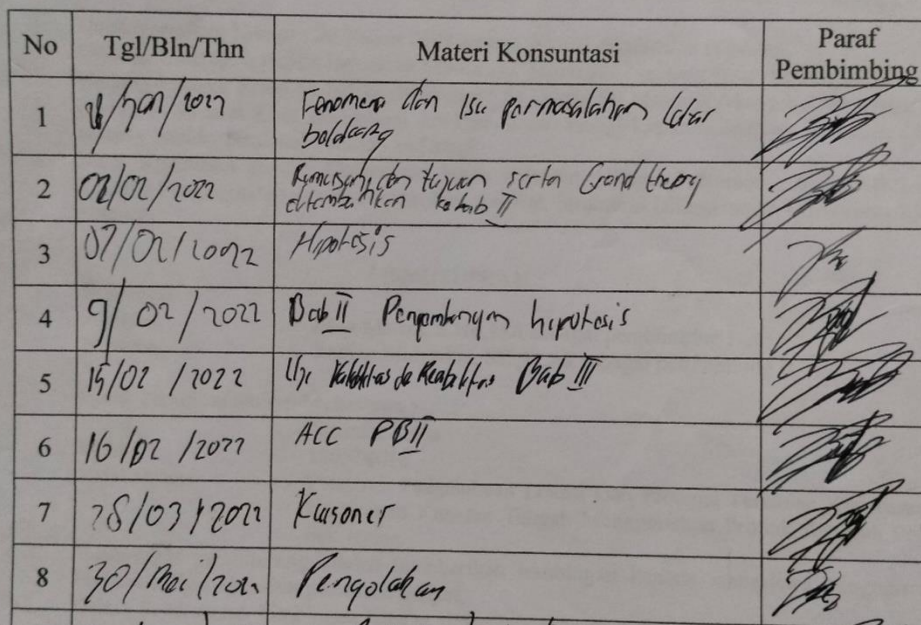 No Tgl/Bln/Thn Materi Konsuntasi Paraf
Pembimbing
1 /Jan/2022 Fenomena dan Isu permasalahan latar
belakang
2 02/02/2022 dan tujuan serta Grand theory
ditambahkan ke bab II
3 07/02/2022 Hipotesis
4 9/02/2022 Bab II Pengembangan hipotesis
5 15/02/2022 Uji Validitas da Reabilitas Bab III
6 16/02/2022 ACC PB II
7 28/03/2022 Kuisoner
8 30/Mei/2022 Pengolahan